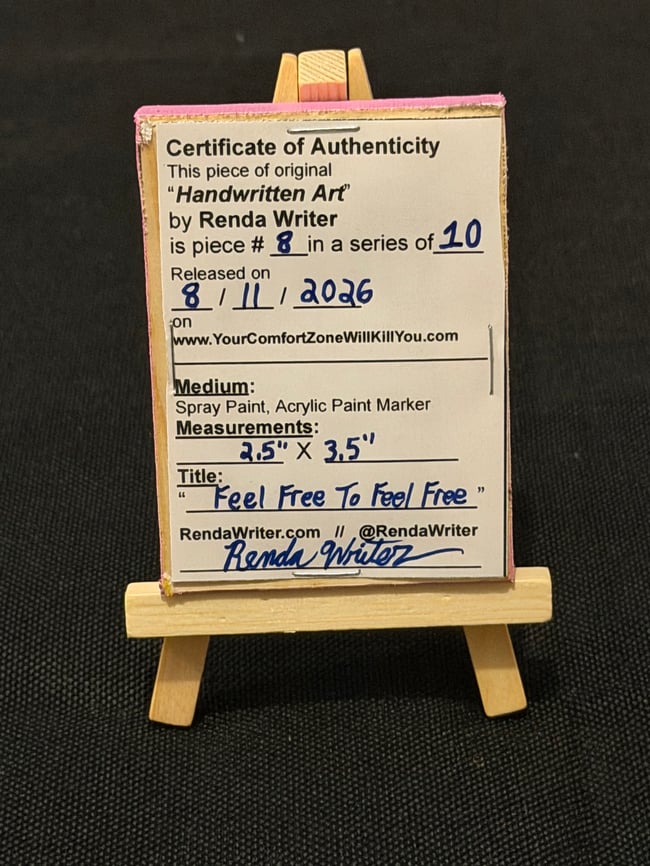 Certificate of Authenticity
This piece of original
"Handwritten Art"
by Renda Writer
is piece # 8 in a series of 10
Released on
8 / 11 / 2026
on
www.YourComfortZoneWillKillYou.com
Medium:
Spray Paint, Acrylic Paint Marker
Measurements:
2.5" X 3.5"
Title:
" Feel Free To Feel Free "
RendaWriter.com // @RendaWriter
Renda Writer